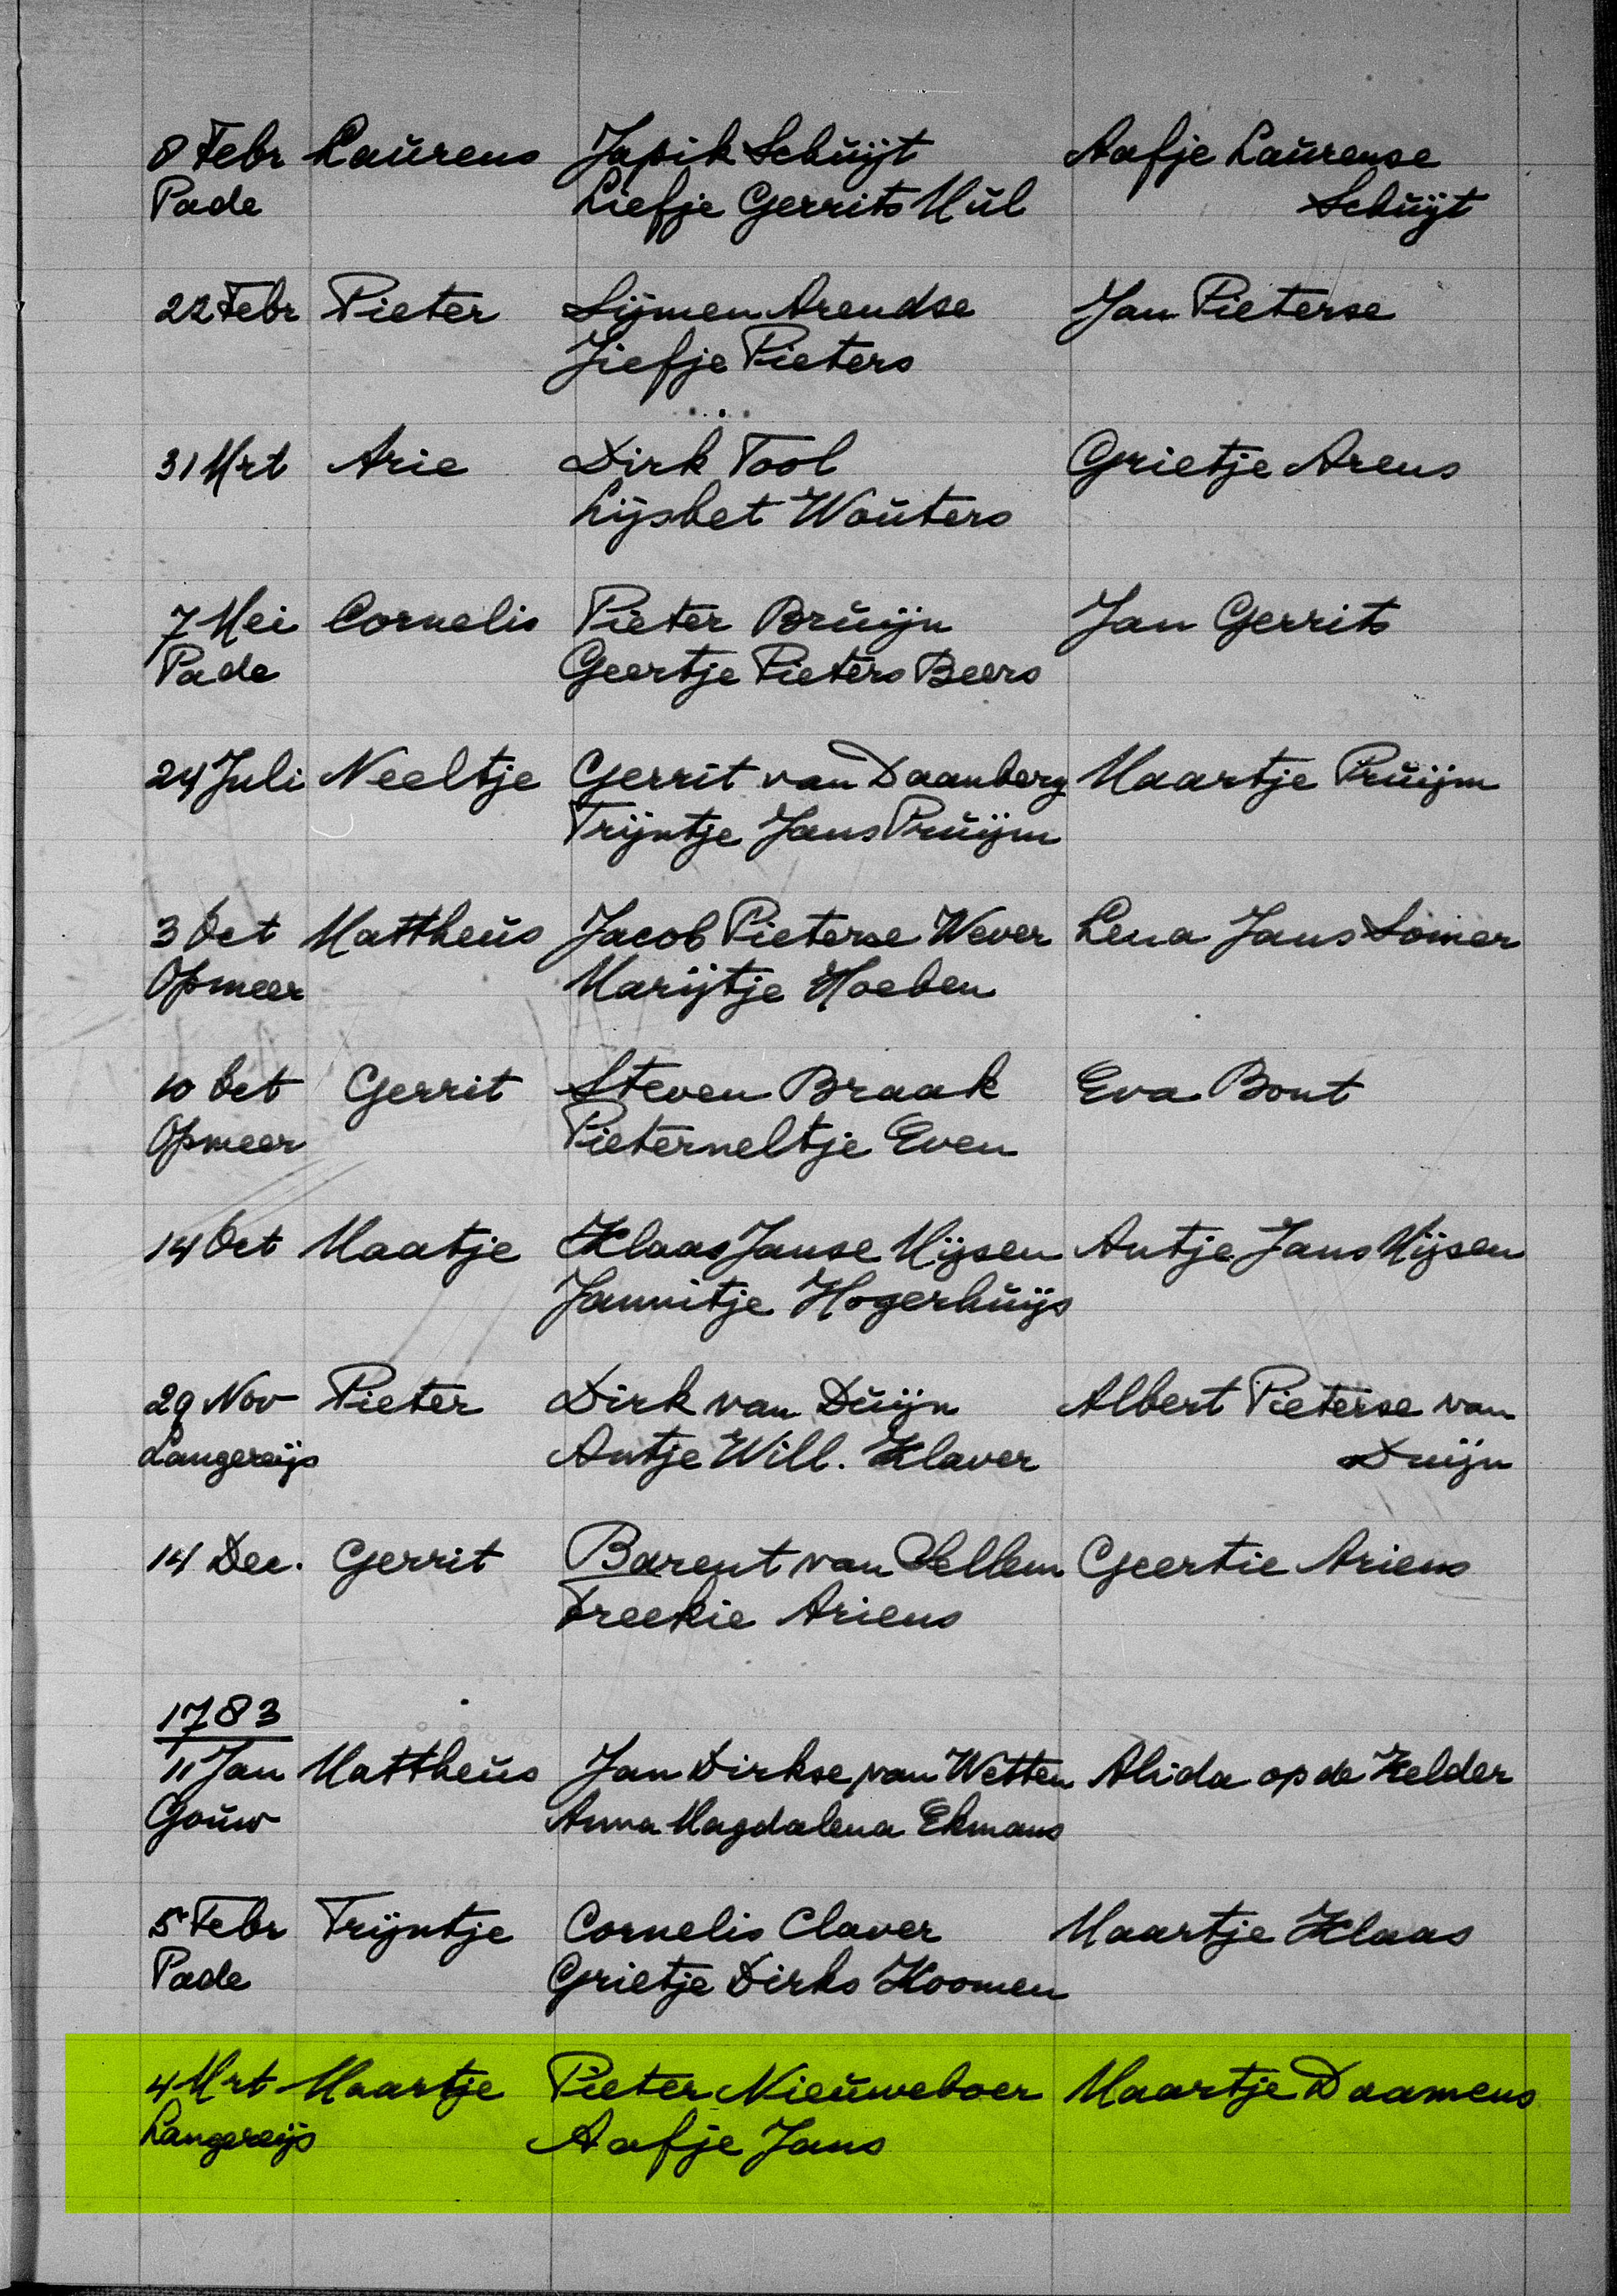 8 Febr Laurens Japik Schuijt Aafje Laurense
Pade Liefje Gerrits Mul Schuijt
22 Febr Pieter Sijmen Arendse Jan Pieterse
Jiefje Pieters
31 Mrt Arie Dirk Tool Grietje Arens
Lijsbet Wouters
7 Mei Cornelis Pieter Bruijn Jan Gerrits
Pade Geertje Pieters Beers
24 Juli Neeltje Gerrit van Daanberg Maartje Pruijm
Trijntje Jans Pruijm
3 Oct Mattheus Jacob Pieterse Wever Lena Jans Somer
Opmeer Marijtje Hoeben
10 Oct Gerrit Steven Braak Eva Bont
Opmeer Pieterneltje Even
14 Oct Maatje Klaas Janse Mijsen Antje Jans Mijsen
Jannitje Hogerhuijs
29 Nov Pieter Dirk van Duijn Albert Pieterse van
Langereijs Antje Will. Klaver Duijn
14 Dec. Gerrit Barent van Geertie Ariens
Freekie Ariens
1783
11 Jan Mattheus Jan Dirkse van Wetten Alida op de Kelder
Gouw Anna Magdalena Ekmans
5 Febr Trijntje Cornelis Claver Maartje Klaas
Pade Grietje Dirks Koomen
4 Mrt Maartje Pieter Nieuweboer Maartje Daamens
Langereijs Aafje Jans